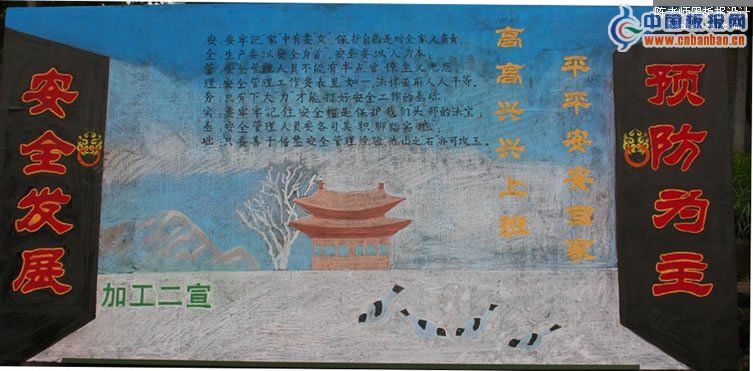 陈老师黑板报设计
中国板报网
www.cnbanbao.cn
安全发展
预防为主
安:安牢记,家中有妻女,保护自己是对全家人负责
全:生产要以安全为首,安全要以人为本。
管:安全管理人员不能有半点官僚主义思想。
理:安全管理工作要表里如一,法律面前人人平等。
务:只有下大力才能打好安全工作的基础。
实:要牢牢记住安全帽是保护我们头部的法宝。
基:安全管理人员要各司其职,脚踏实地。
础:只要善于借鉴安全管理经验,他山之石亦可攻玉。
高高兴兴上班
平平安安回家
加工二宣